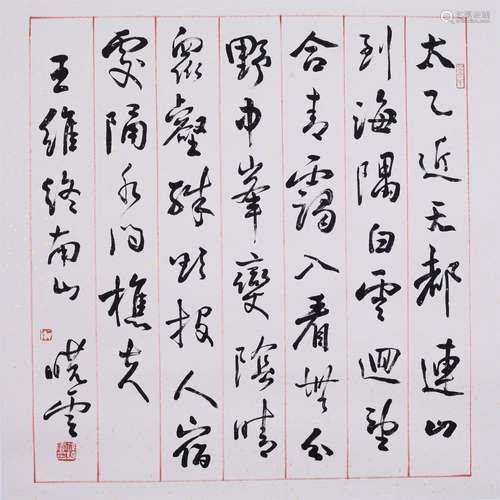 太乙近天都連山
到海隅白雲迴望
合青靄入看無分
野中峯變陰晴
眾壑殊欲投人宿
處隔水問樵夫
王維終南山
曉雲